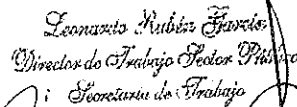 Leonardo Rubén García
Director de Trabajo Sector Público
Secretaria de Trabajo